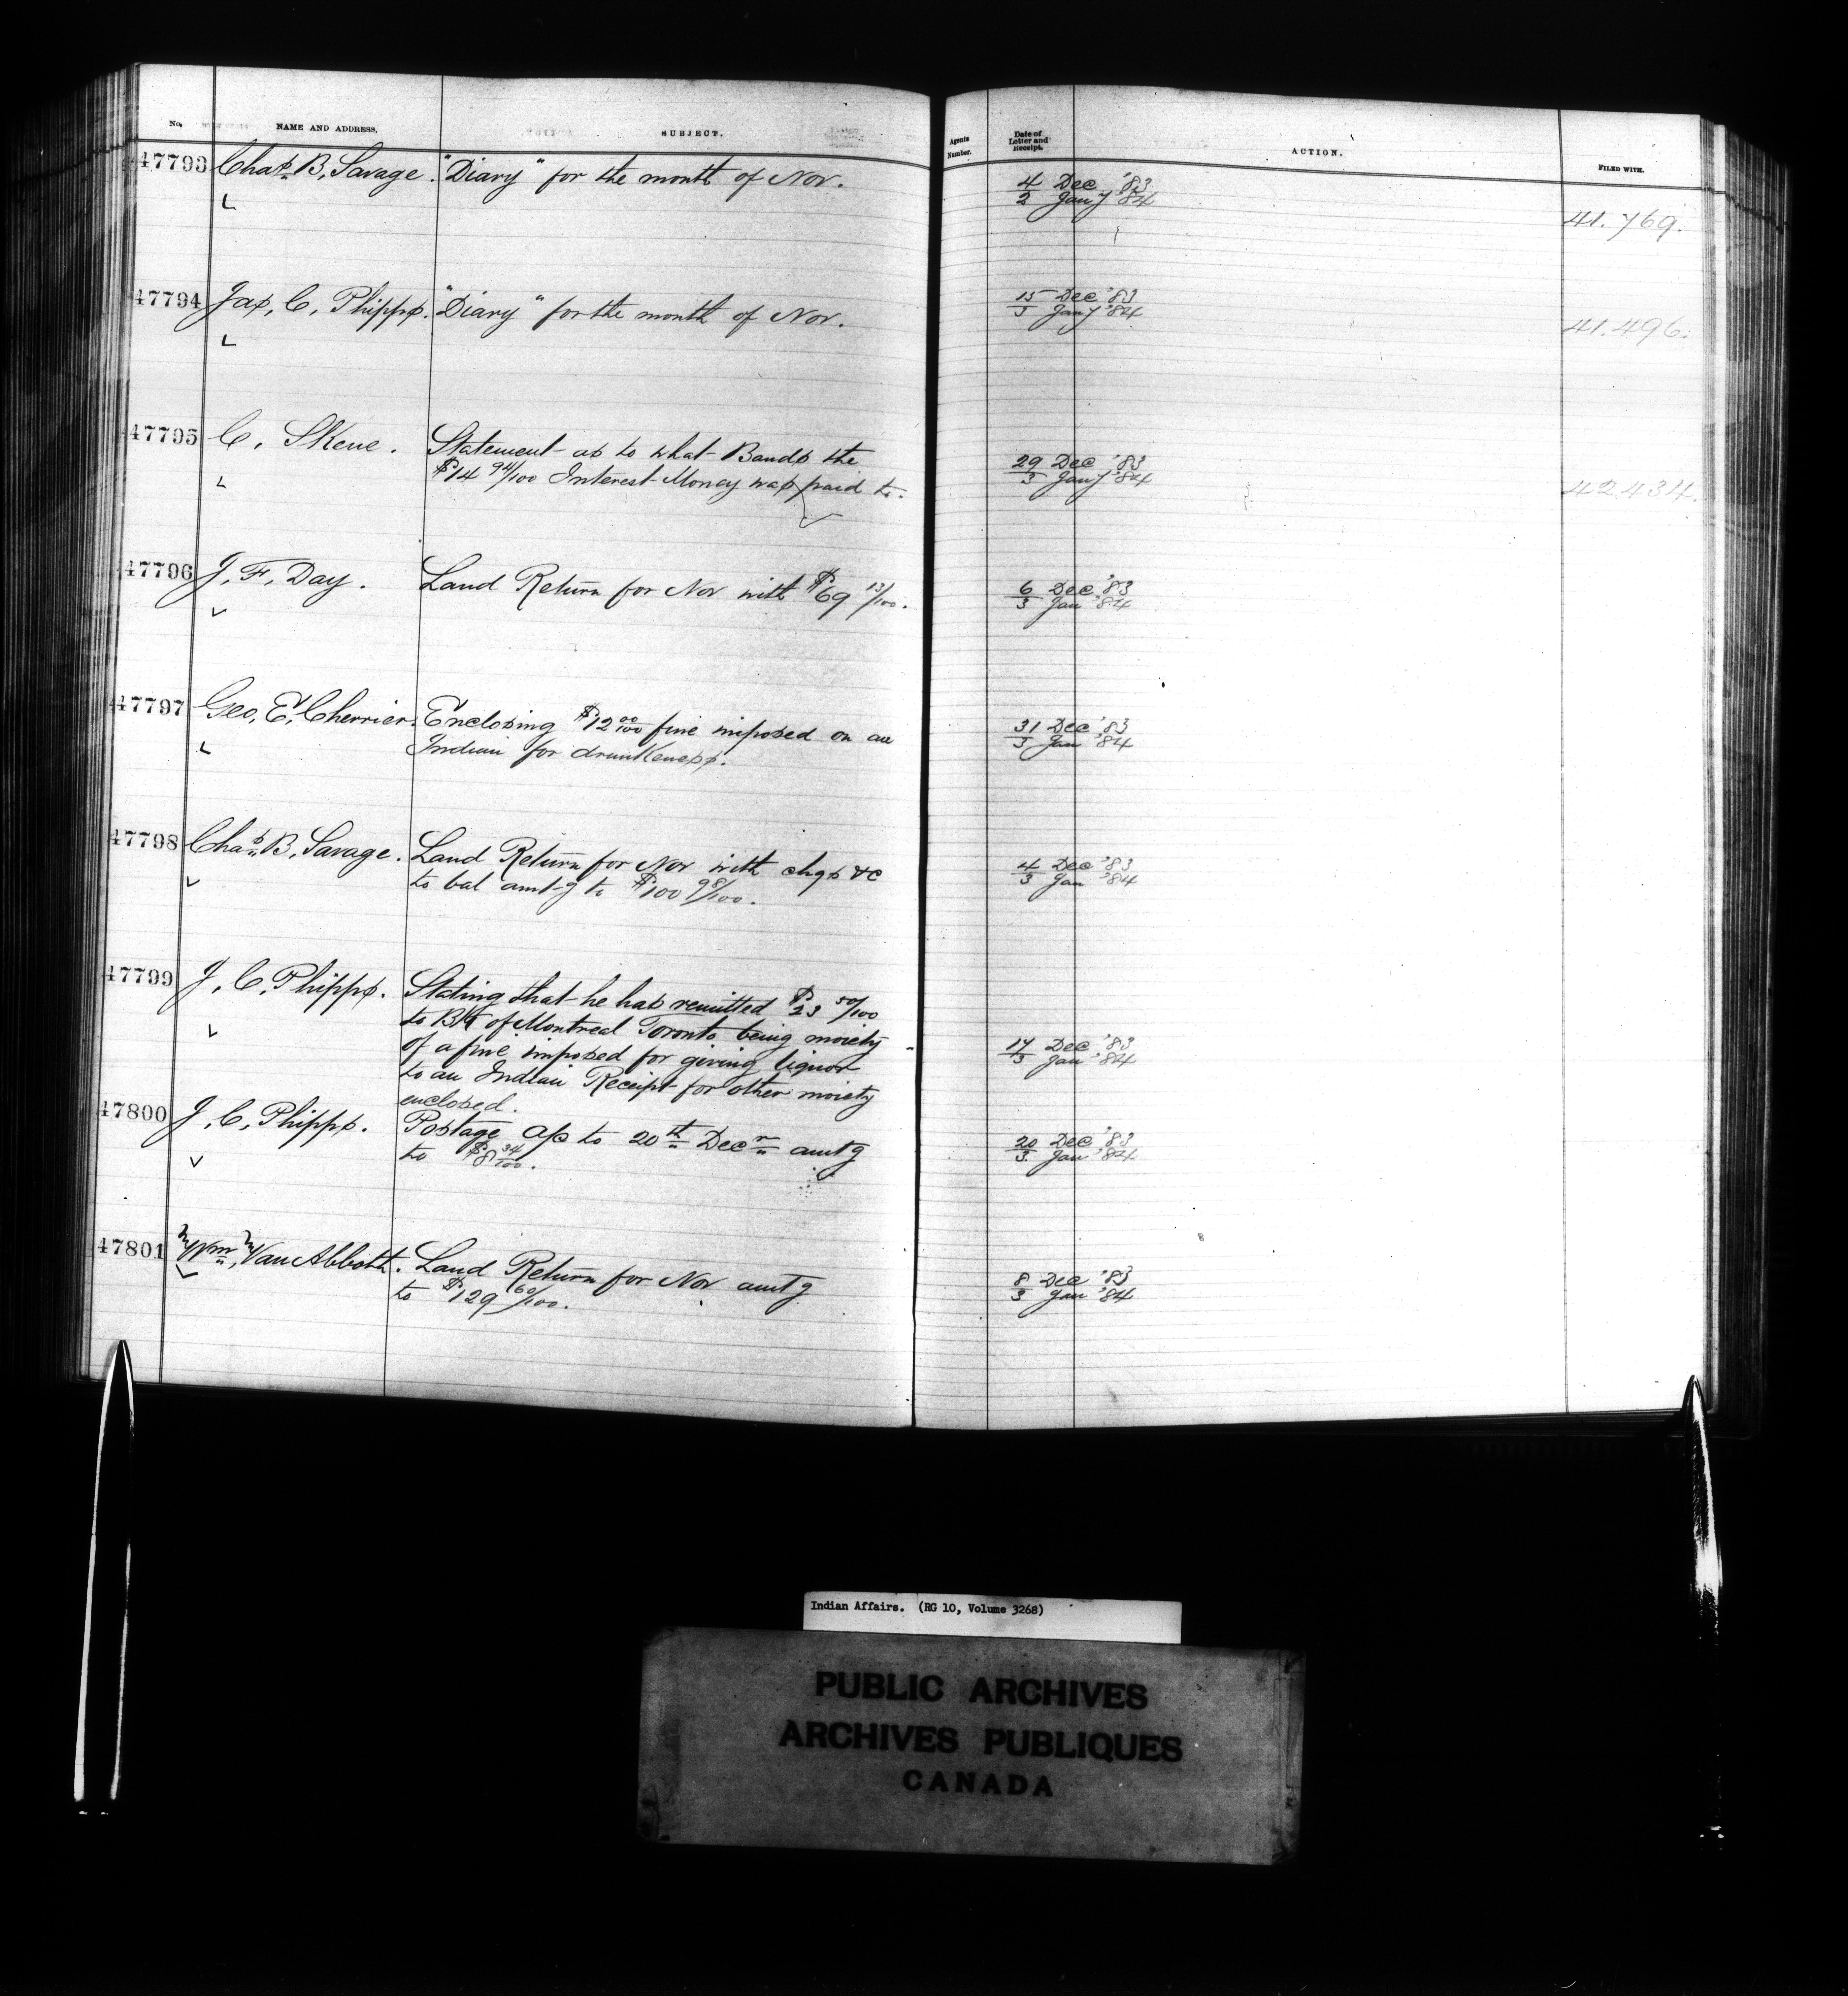 No. NAME AND ADDRESS. SUBJECT. Agents Number. Date of Letter and Receipt. ACTION. FILED WITH.
47793 Chas. B. Savage. "Diary" for the month of Nov. 4 Dec '83
2 Jany '84
41.769.
47794 Jas. C. Phipps. "Diary" for the month of Nov. 15 Dec '83
3 Jany '84
41.496.
47795 C. Skene. Statement as to what Bands the 29 Dec '83
$14 94/100 Interest Money was paid to. 3 Jany '84
42434.
47796 J. F. Day. Land Return for Nov with $69 13/100. 6 Dec '83
3 Jan '84
47797 Geo. E. Cherrier. Enclosing $12 00/100 fine imposed on an 31 Dec '83
Indian for drunkeness. 3 Jan '84
47798 Chas. B. Savage. Land Return for Nov with chqs &c 4 Dec '83
to bal amt-g to $100 98/100. 3 Jan '84
47799 J. C. Phipps. Stating that he has remitted $23 50/100
to Bk of Montreal Toronto being moiety
of a fine imposed for giving liquor 17 Dec '83
to an Indian Receipt for other moiety 3 Jan '84
enclosed.
47800 J. C. Phipps. Postage a/c to 20th Decr amtg 20 Dec '83
to $8 34/100. 3 Jan '84
47801 Wm. Van Abbott. Land Return for Nov amtg 8 Dec '83
to $129 60/100. 3 Jan '84
Indian Affairs. (RG 10, Volume 3268)
PUBLIC ARCHIVES
ARCHIVES PUBLIQUES
CANADA